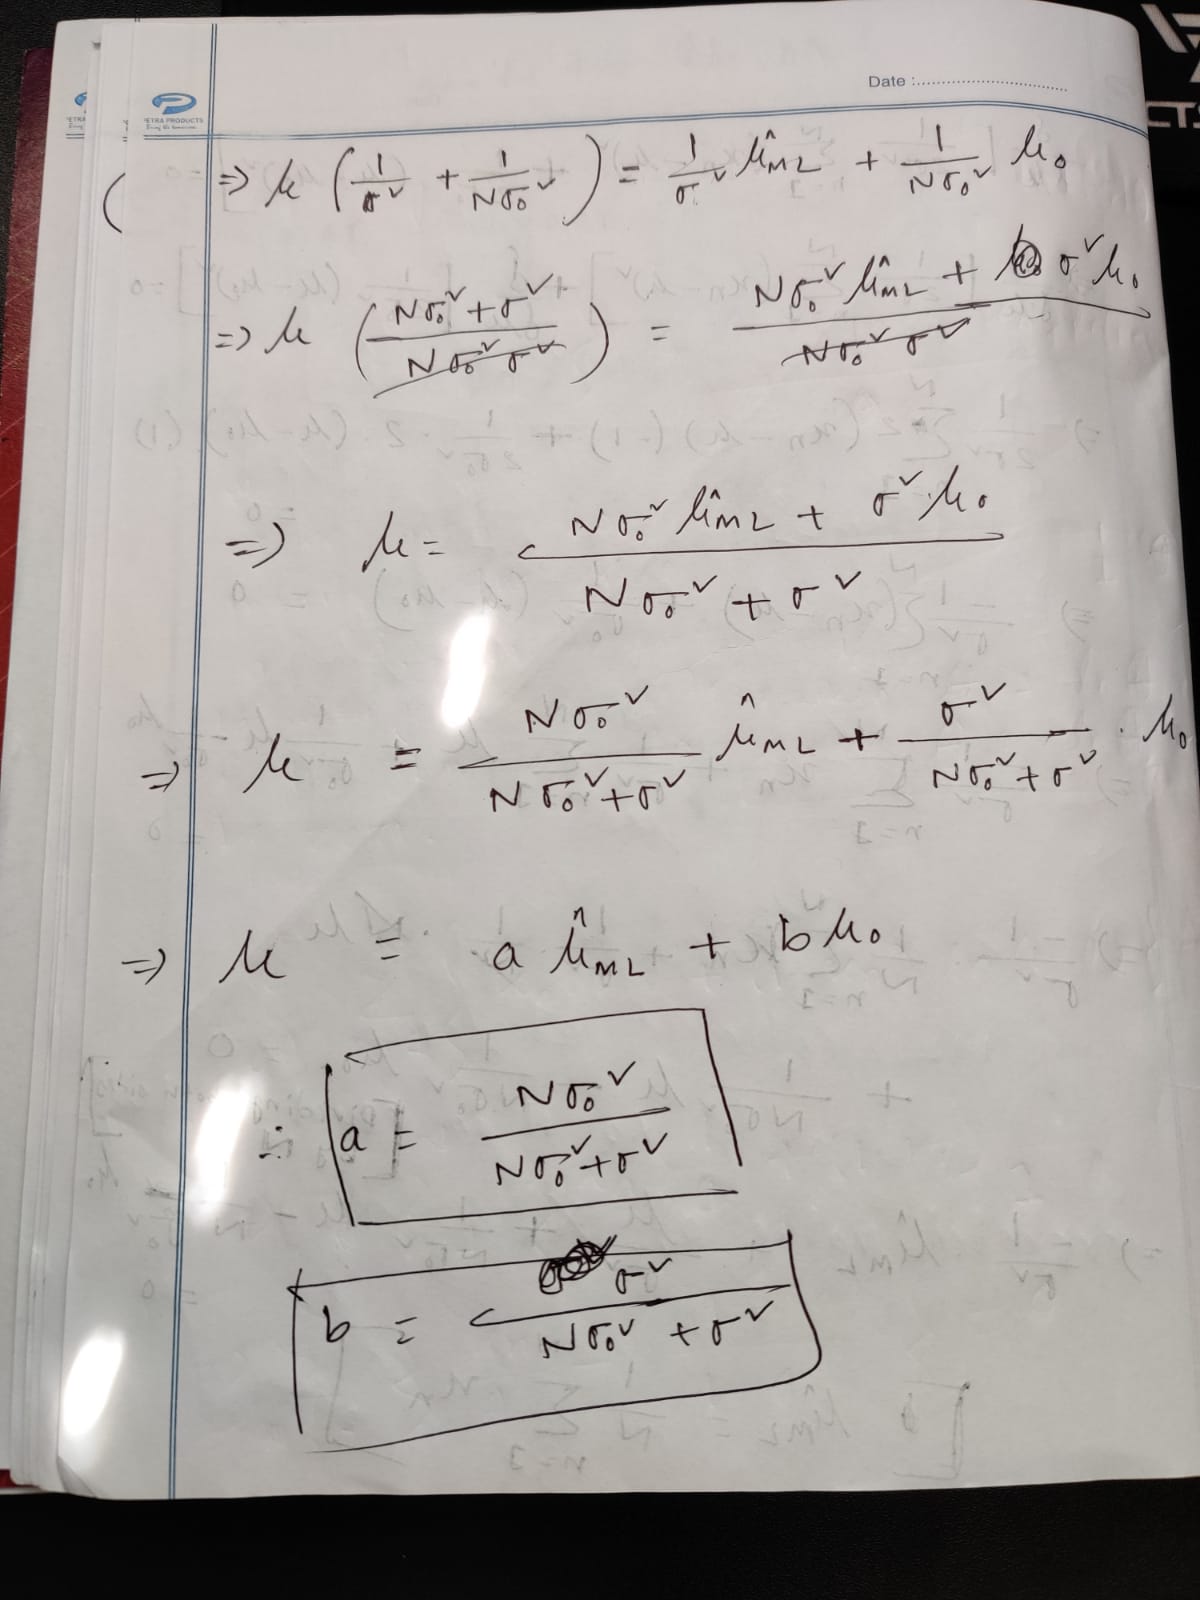 Date :
PETRA PRODUCTS
⇒ μ (1/σ² + 1/Nσ₀²) = 1/σ² μ̂ML + 1/Nσ₀² μ₀
⇒ μ ((Nσ₀² + σ²)/(Nσ₀² σ²)) = (Nσ₀² μ̂ML + σ² μ₀)/(Nσ₀² σ²)
⇒ μ = (Nσ₀² μ̂ML + σ² μ₀)/(Nσ₀² + σ²)
⇒ μ = Nσ₀²/(Nσ₀² + σ²) μ̂ML + σ²/(Nσ₀² + σ²) . μ₀
⇒ μ = a μ̂ML + b μ₀
∴ a = Nσ₀²/(Nσ₀² + σ²)
b = σ²/(Nσ₀² + σ²)